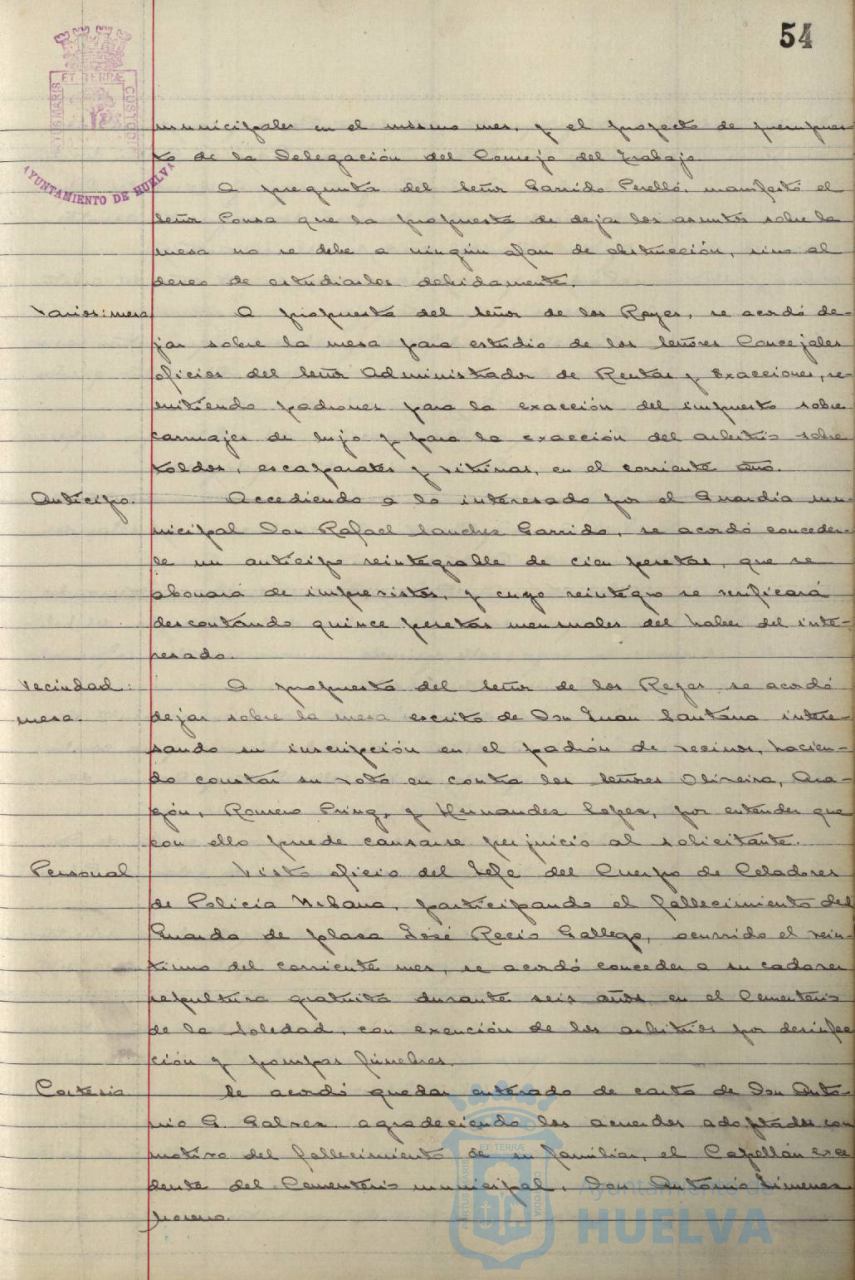 54
ET TERRÆ
CUSTOD
AYUNTAMIENTO DE HUELVA
municipales en el mismo mes, y el proyecto de presupues-
to de la Delegación del Consejo del Trabajo.
A pregunta del Señor Garrido Perelló, manifestó el
Señor Ponsa que la propuesta de dejar los asuntos sobre la
mesa no se debe a ningún afan de obstrucción, sino al
deseo de estudiarlos debidamente.
Varios: mesa
A propuesta del Señor de los Reyes, se acordó de-
jar sobre la mesa para estudio de los Señores Concejales
oficios del Señor Administrador de Rentas y Exacciones, re-
mitiendo padrones para la exacción del impuesto sobre
carruajes de lujo y para la exacción del arbitrio sobre
toldos, escaparates y vitrinas, en el corriente año.
Anticipo.
Accediendo a lo interesado por el Guardia mu-
nicipal Don Rafael Sanchez Garrido, se acordó conceder-
le un anticipo reintegrable de cien pesetas, que se
abonará de imprevistos, y cuyo reintegro se verificará
descontando quince pesetas mensuales del haber del inte-
resado.
Vecindad:
mesa.
A propuesta del Señor de los Reyes, se acordó
dejar sobre la mesa escrito de Don Juan Santana intere-
sando su inscripción en el padrón de vecinos, hacien-
do constar su voto en contra los Señores Oliveira, Ara-
gón, Romero Pring, y Hernandez Lopez, por entender que
con ello puede causarse perjuicio al solicitante.
Personal
Visto oficio del Jefe del Cuerpo de Celadores
de Policia Urbana, participando el fallecimiento del
Guarda de plaza José Recio Gallego, ocurrido el vein-
tiuno del corriente mes, se acordó conceder a su cadaver
sepultura gratuita durante seis años, en el Cementerio
de la Soledad, con exención de los arbitrios por desinfec-
ción y pompas fúnebres.
Cortesia
Se acordó quedar enterado de carta de Don Anto-
nio G. Galvez, agradeciendo los acuerdos adoptados con
motivo del fallecimiento de su familiar, el Capellán exce-
dente del Cementerio municipal, Don Antonio Jimenez
Moreno.
Ayuntamiento de
HUELVA